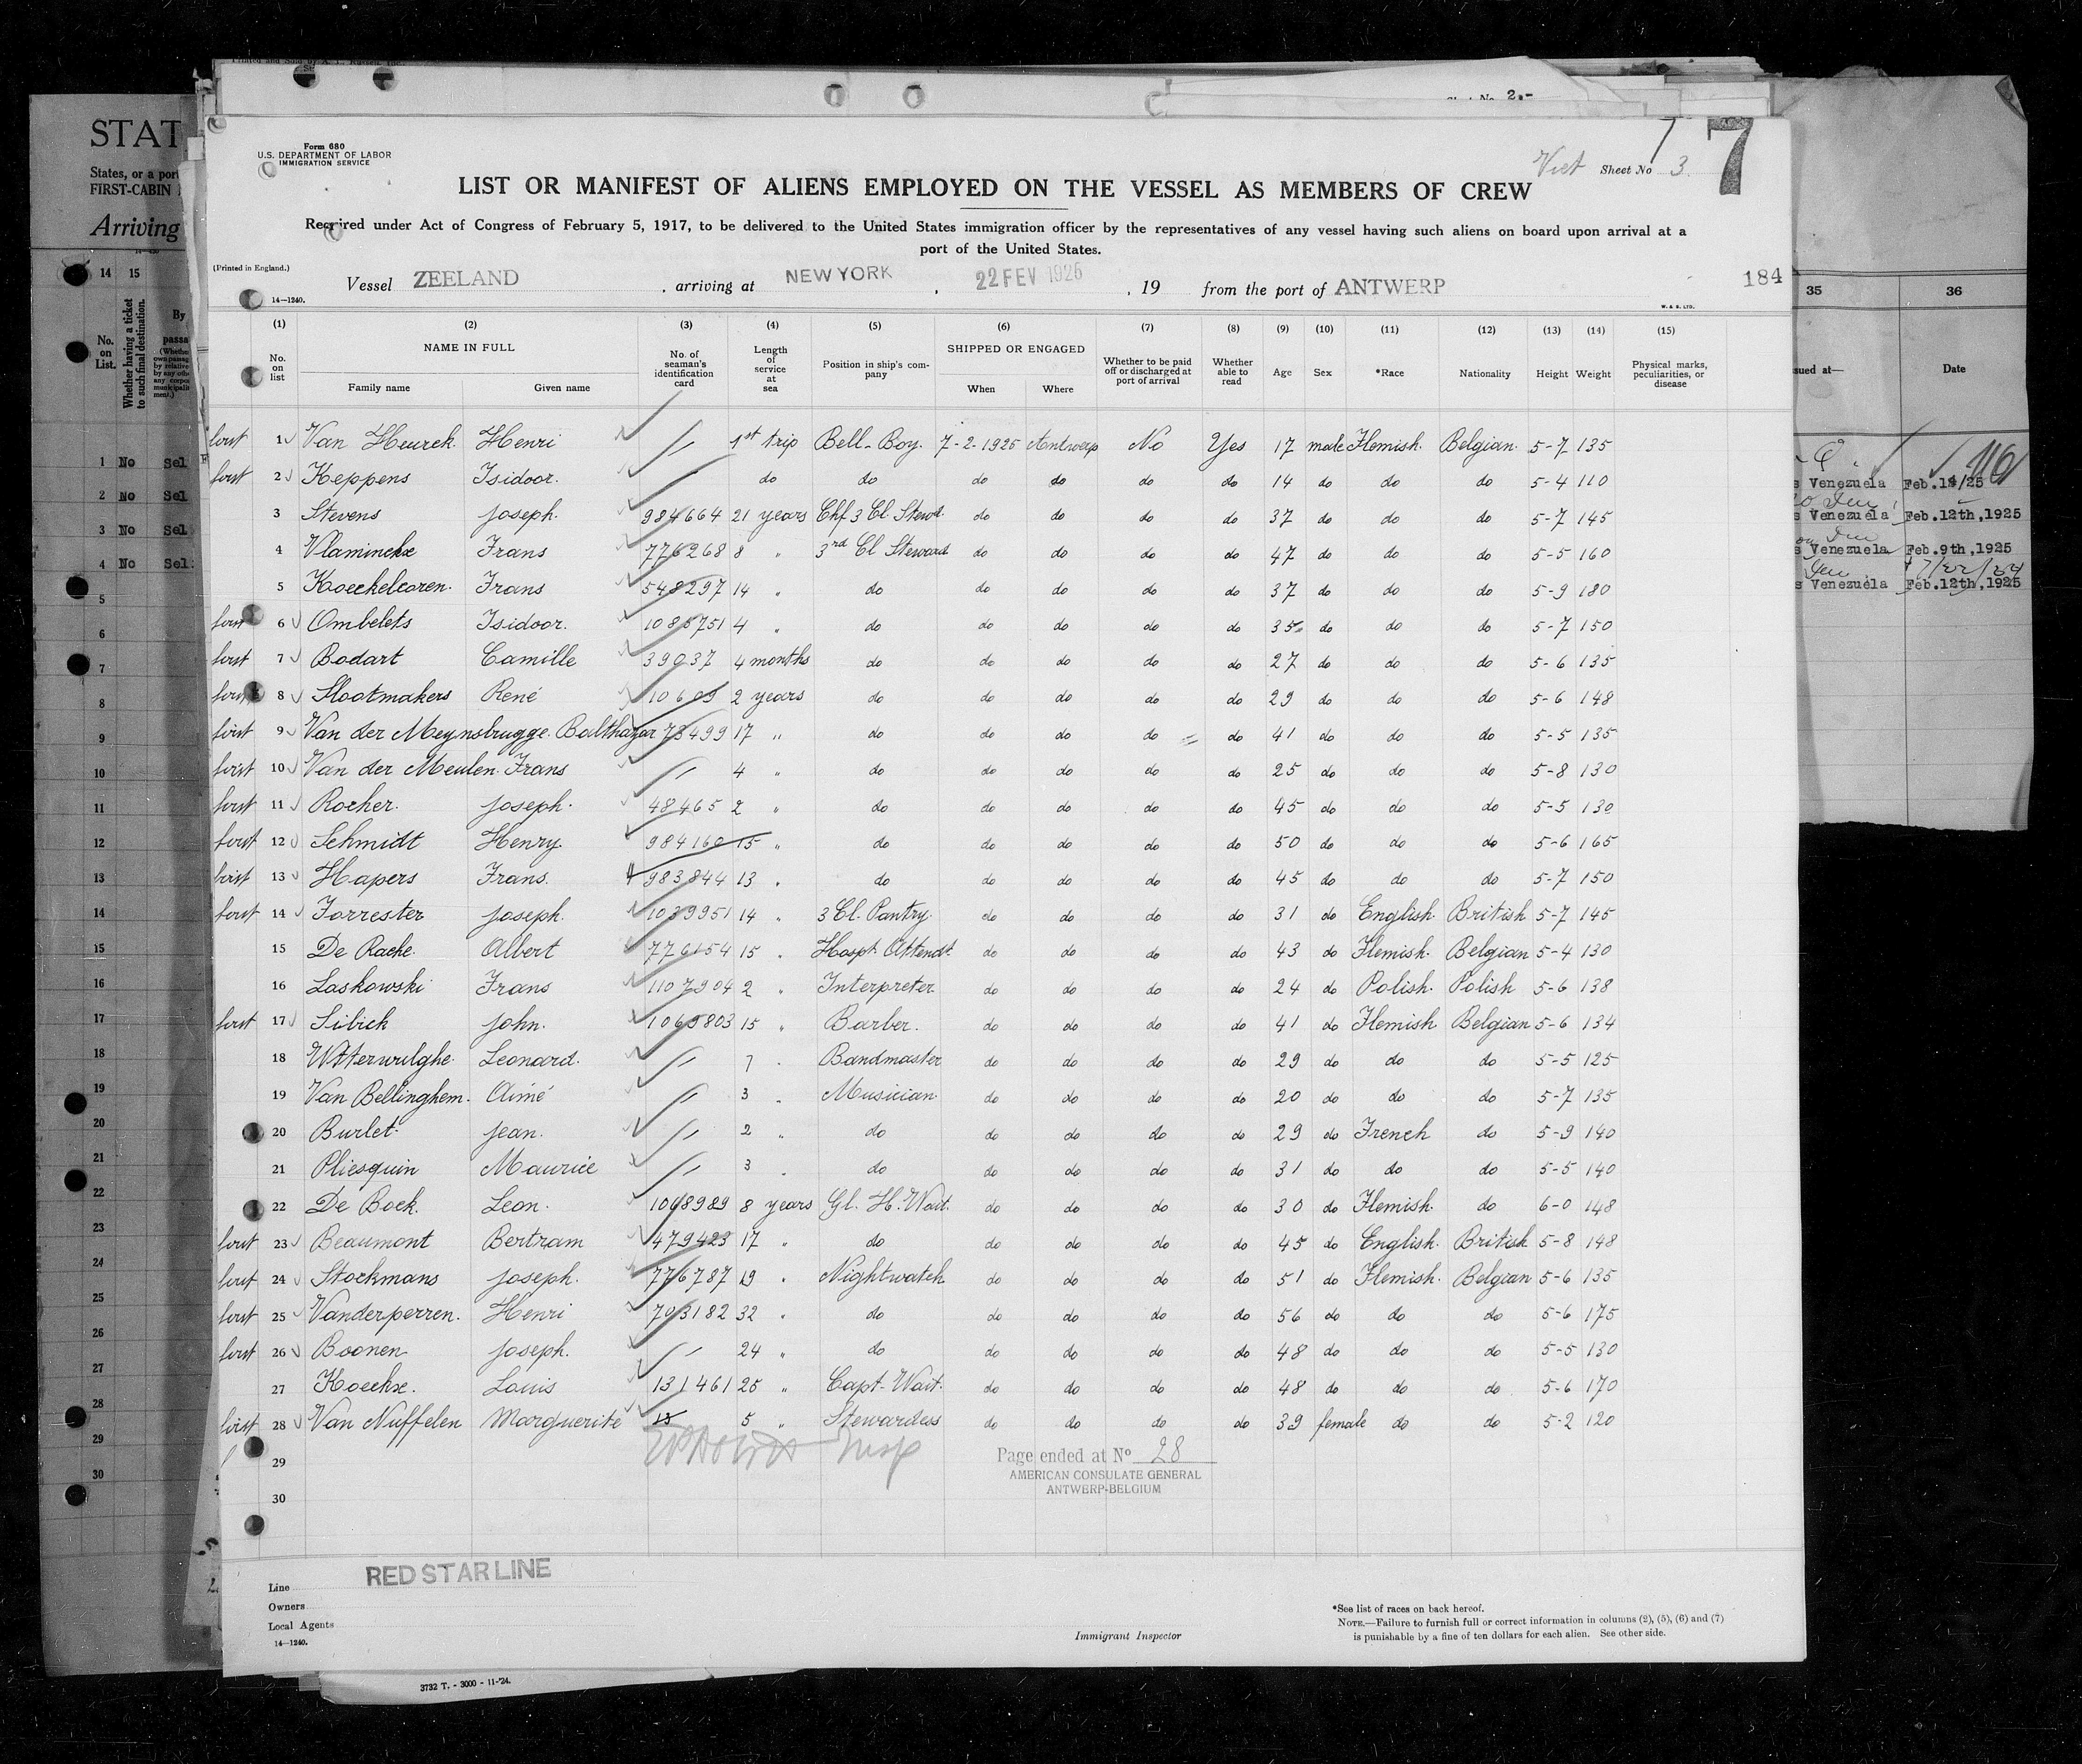 Form 680
U.S. DEPARTMENT OF LABOR
IMMIGRATION SERVICE
Sheet No 3
7
LIST OR MANIFEST OF ALIENS EMPLOYED ON THE VESSEL AS MEMBERS OF CREW
Required under Act of Congress of February 5, 1917, to be delivered to the United States immigration officer by the representatives of any vessel having such aliens on board upon arrival at a
port of the United States.
(Printed in England.)
Vessel ZEELAND , arriving at NEW YORK , 22 FEV 1925 , 19 from the port of ANTWERP
184
14—1240.
W. & S. LTD.
(1) (2) (3) (4) (5) (6) (7) (8) (9) (10) (11) (12) (13) (14) (15)
No. on list NAME IN FULL Family name Given name No. of seaman's identification card Length of service at sea Position in ship's company SHIPPED OR ENGAGED When Where Whether to be paid off or discharged at port of arrival Whether able to read Age Sex *Race Nationality Height Weight Physical marks, peculiarities, or disease
first 1 Van Heurck Henri // 1st trip Bell-Boy 7-2-1925 Antwerp No Yes 17 male Flemish Belgian 5-7 135
first 2 Keppens Isidoor do do do do do do 14 do do do 5-4 110
3 Stevens Joseph 984664 21 years Chf 3 Cl. Stewd. do do do do 37 do do do 5-7 145
4 Vlaminckx Frans 776268 8 " 3rd Cl Steward do do do do 47 do do do 5-5 160
5 Koeckelcoren Frans 548297 14 " do do do do do 37 do do do 5-9 180
first 6 Ombelets Isidoor 1085751 4 " do do do do do 35 do do do 5-7 150
first 7 Bodart Camille 39037 4 months do do do do do 27 do do do 5-6 135
first 8 Slootmakers René 10609 2 years do do do do do 29 do do do 5-6 148
first 9 Van der Meynsbrugge Balthazar 73499 17 " do do do do do 41 do do do 5-5 135
first 10 Van der Meulen Frans // 4 " do do do do do 25 do do do 5-8 130
first 11 Rocher Joseph 48465 2 " do do do do do 45 do do do 5-5 130
first 12 Schmidt Henry 984160 15 " do do do do do 50 do do do 5-6 165
first 13 Hapers Frans 983844 13 " do do do do do 45 do do do 5-7 150
first 14 Forrester Joseph 1039951 14 " 3 Cl. Pantry do do do do 31 do English British 5-7 145
15 De Racke Albert 776154 15 " Hospt. Attendt. do do do do 43 do Flemish Belgian 5-4 130
16 Laskowski Frans 1107904 2 " Interpreter do do do do 24 do Polish Polish 5-6 138
first 17 Sibich John 1069803 15 " Barber do do do do 41 do Flemish Belgian 5-6 134
18 Wtterwulghe Leonard // 7 " Bandmaster do do do do 29 do do do 5-5 125
19 Van Bellinghem Aimé // 3 " Musician do do do do 20 do do do 5-7 135
20 Burlet Jean // 2 " do do do do do 29 do French do 5-9 140
21 Pliesquin Maurice // 3 " do do do do do 31 do do do 5-5 140
22 De Bock Leon 1068989 8 years Gl. H. Wait. do do do do 30 do Flemish do 6-0 148
first 23 Beaumont Bertram 479423 17 " do do do do do 45 do English British 5-8 148
first 24 Stockmans Joseph 776787 19 " Nightwatch do do do do 51 do Flemish Belgian 5-6 135
first 25 Vanderperren Henri 703182 32 " do do do do do 56 do do do 5-6 175
first 26 Boonen Joseph // 24 " do do do do do 48 do do do 5-5 130
27 Koeckx Louis 131461 25 " Capt. Wait. do do do do 48 do do do 5-6 170
first 28 Van Nuffelen Marguerite 5 " Stewardess do do do do 39 female do do 5-2 120
29
30
Page ended at No 28
AMERICAN CONSULATE GENERAL
ANTWERP-BELGIUM
Line RED STAR LINE
Owners
Local Agents
14—1240.
Immigrant Inspector
*See list of races on back hereof.
NOTE.—Failure to furnish full or correct information in columns (2), (5), (6) and (7)
is punishable by a fine of ten dollars for each alien. See other side.
3732 T. - 3000 - 11-'24.
STAT
States, or a port
FIRST-CABIN
Arriving
14 15
No. on List. Whether having a ticket to such final destination.
1 No Sel
2 No Sel
3 No Sel
4 No Sel
5
6
7
8
9
10
11
12
13
14
15
16
17
18
19
20
21
22
23
24
25
26
27
28
29
30
35 36
sued at— Date
Venezuela Feb. 12th, 1925
Venezuela Feb. 9th, 1925
Venezuela Feb. 12th, 1925